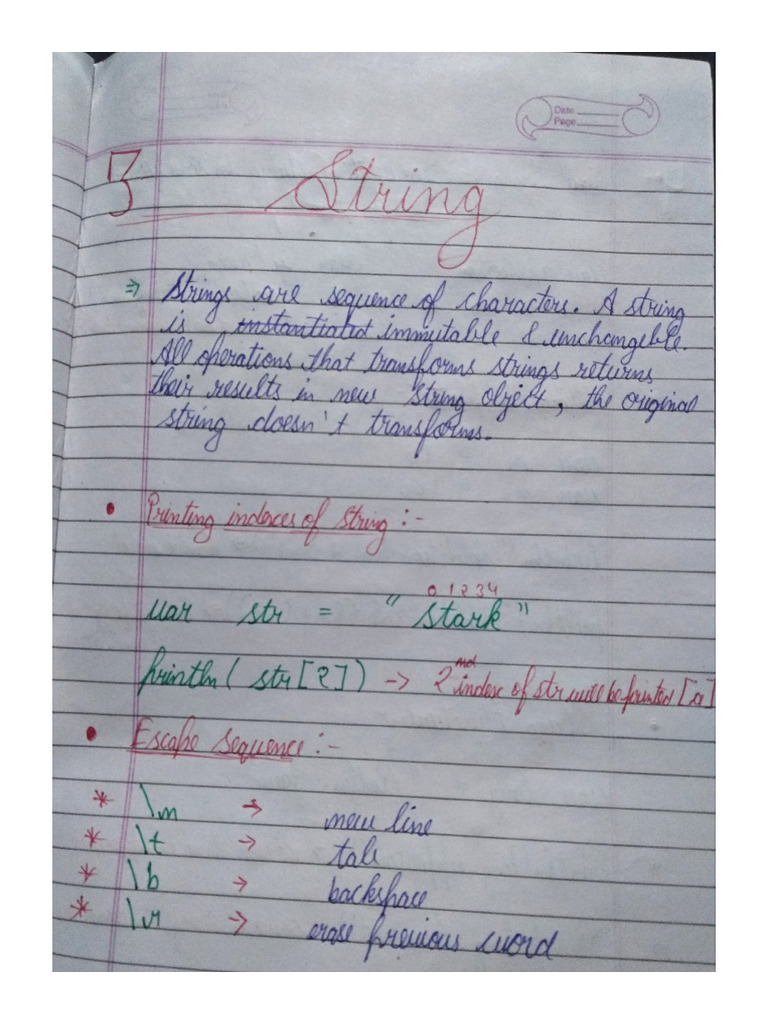 Date
Page
3 String
⇒ Strings are sequence of characters. A string
is , instantiated immutable & unchangeble.
All operations that transforms strings returns
their results in new string object, the original
string doesn't transforms.
• Printing indexes of string :-
0 1 2 3 4
var str = "stark"
println( str[2]) → 2nd index of str will be printed [a]
• Escape sequence :-
* \n → new line
* \t → tab
* \b → backspace
* \r → erase previous word